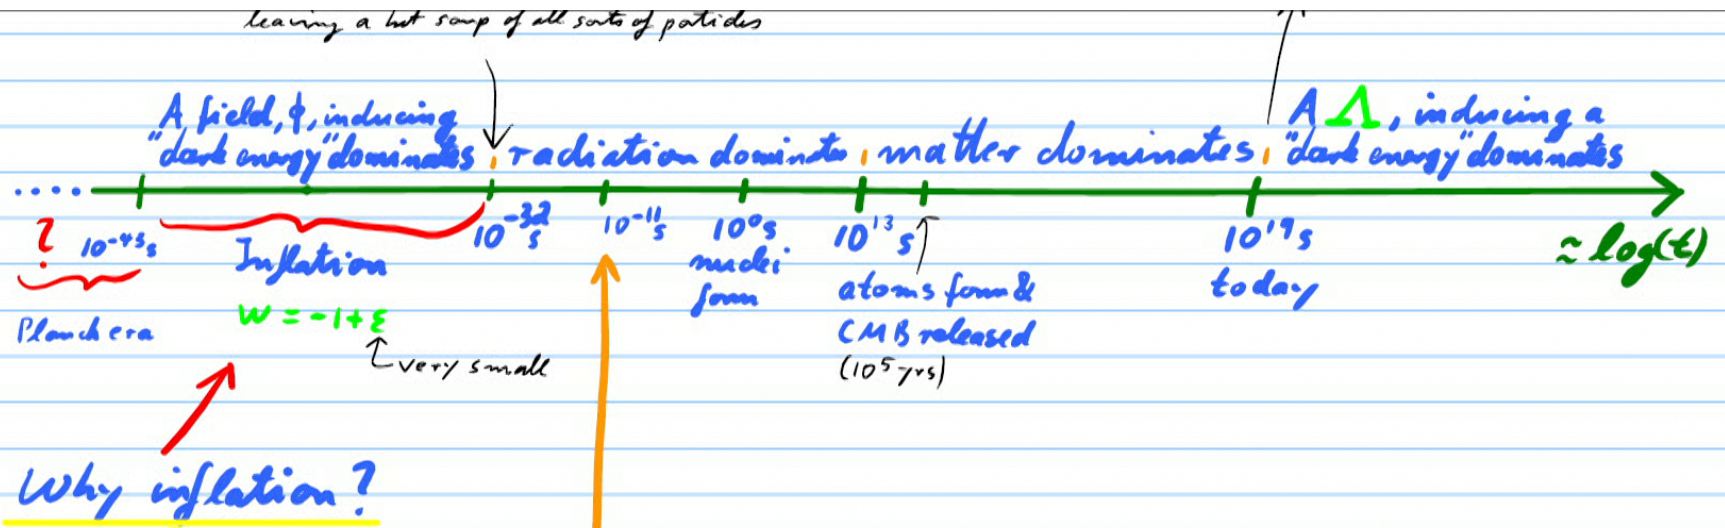 leaving a hot soup of all sorts of particles
A field, ϕ, inducing
"dark energy" dominates
radiation dominates
matter dominates
A Λ, inducing a
"dark energy" dominates
....
?
10⁻⁴³s
Planck era
Inflation
w = -1+ε
very small
10⁻³²s
10⁻¹¹s
10⁰s
nuclei
form
10¹³s
atoms form &
CMB released
(10⁵ yrs)
10¹⁹s
today
≈ log(t)
Why inflation?